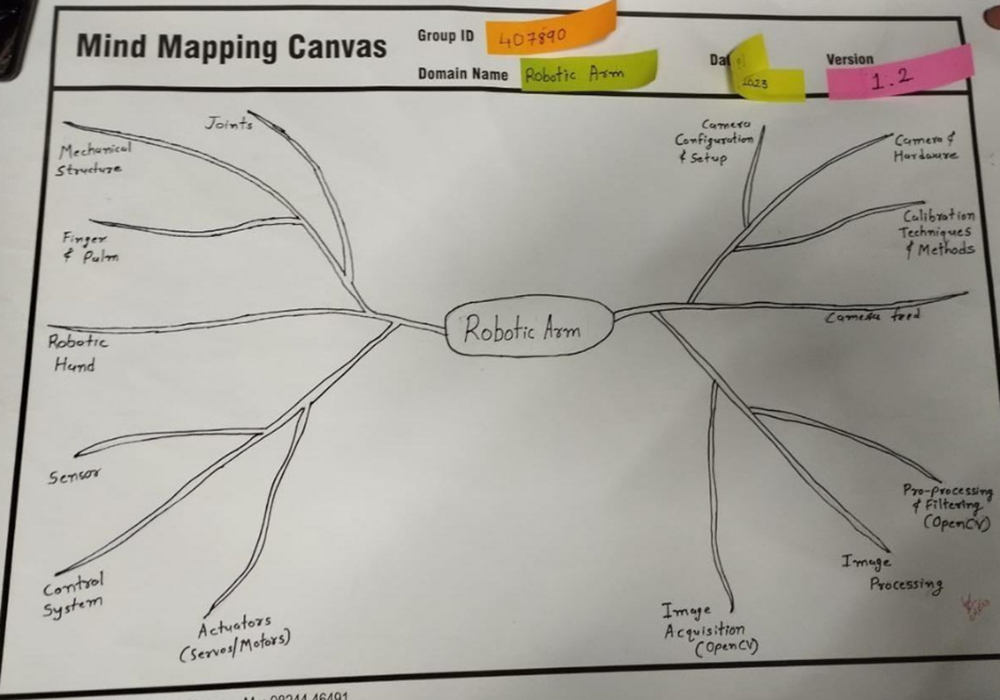 Mind Mapping Canvas
Group ID 407890
Domain Name Robotic Arm
Version 1.2
Joints
Mechanical
Structure
Finger
& Palm
Robotic
Hand
Sensor
Control
System
Actuators
(Servos/Motors)
Robotic Arm
Camera
Configuration
& Setup
Camera &
Hardware
Calibration
Techniques
& Methods
Camera feed
Pro-processing
& Filtering
(OpenCV)
Image
Processing
Image
Acquisition
(OpenCV)